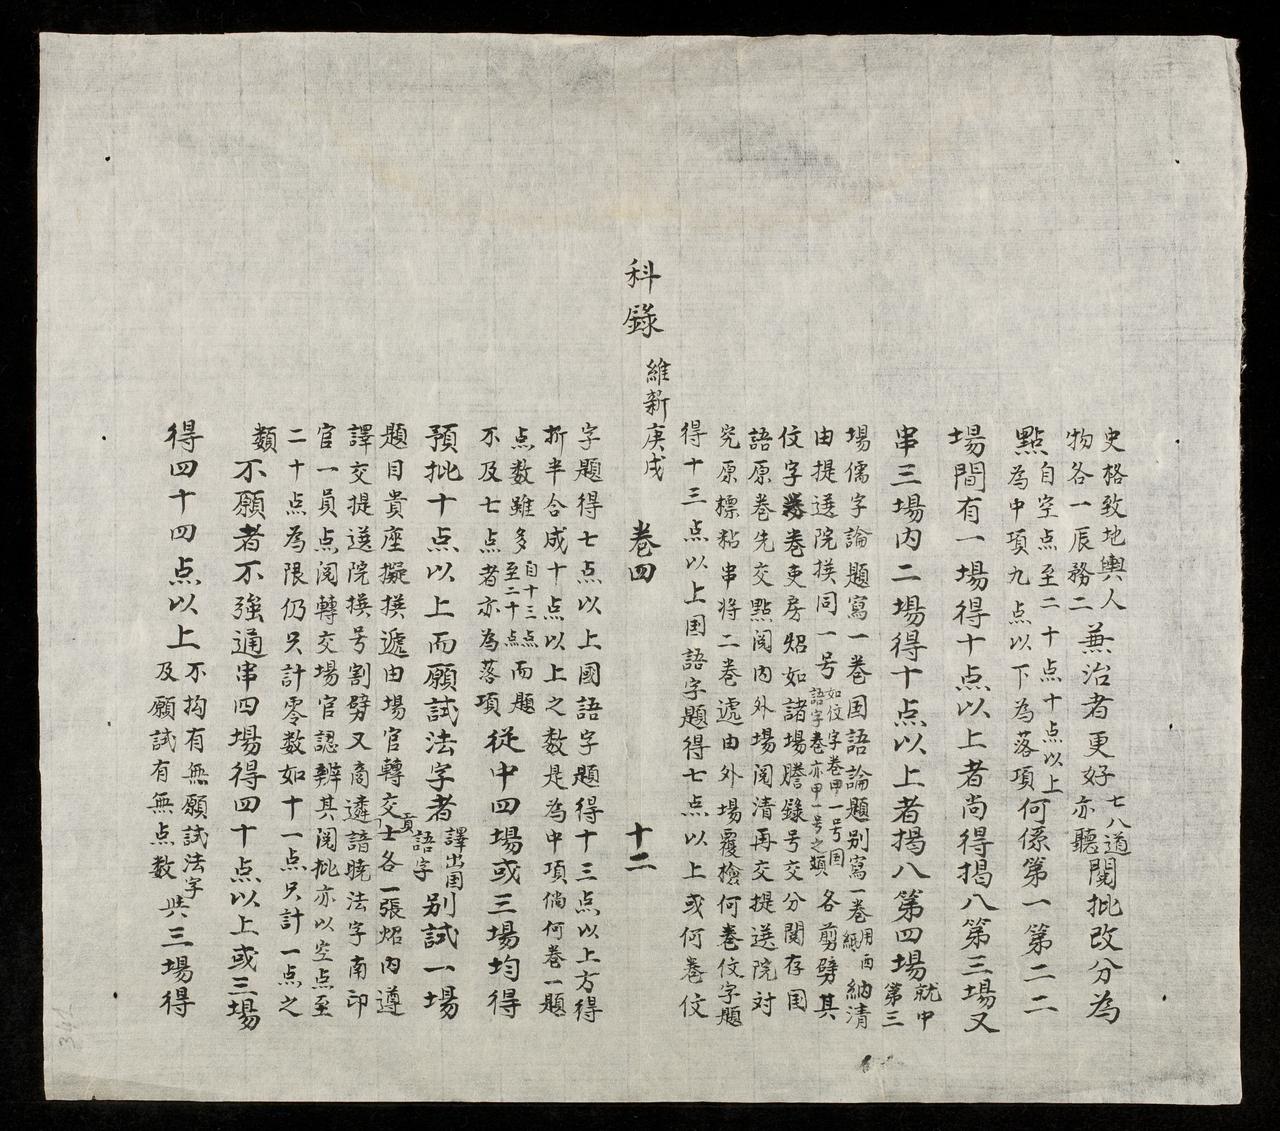 史格致地輿人
物各一辰務二
兼治者更好
七八道
亦聽
閱批改分為
點
自空点至二十点十点以上
為中項九点以下為落項
何係第一第二二
場間有一場得十点以上者尚得揭八第三場又
串三場内二場得十点以上者揭八第四場
就中
第三
場儒字論題寫一卷国語論題别寫一卷用西紙納清
由提送院撲同一号如伩字卷甲一号国語字卷亦甲一号之類各剪劈其
伩字卷吏房炤如諸場謄錄号交分閱存国
語原卷先交點閱内外場閱清再交提送院対
究原標粘串将二卷遞由外場覆檢何卷伩字題
得十三点以上国語字題得七点以上或何卷伩
科錄 維新庚戌 卷四 十二
字題得七点以上國語字題得十三点以上方得
折半合成十点以上之数是為中項倘何卷一題
点数雖多自十三点至二十点而題
不及七点者亦為落項
從中四場或三場均得
預批十点以上而願試法字者
譯出国
語字
别試一場
題目貴座擬撰遞由場官轉交貢士各一張炤内遵
譯交提送院撲号割劈又商遴諳曉法字南印
官一員点閱轉交場官認辨其閱批亦以空点至
二十点為限仍只計零数如十一点只計一点之
類
不願者不強通串四場得四十点以上或三場
得四十四点以上
不拘有無願試法字
及願試有無点数
共三場得